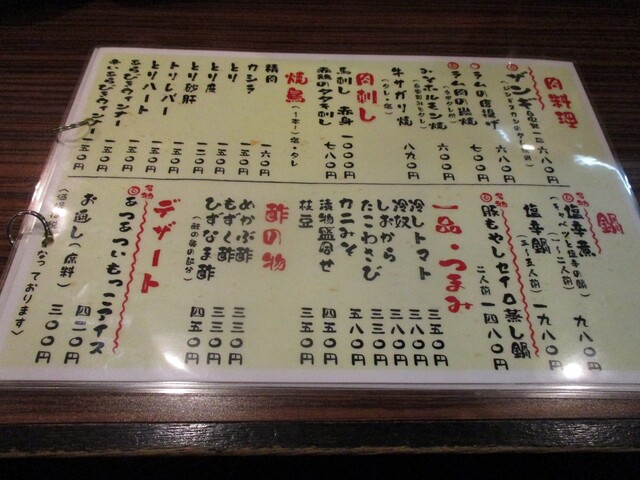 肉料理
ザンギ
六八〇円
ラムの唐揚げ
六八〇円
ラム肉の岩焼
七〇〇円
マイホルモン焼
六〇〇円
牛サガリ焼
(タレ・塩)
八九〇円
肉刺し
馬刺し 赤身
一〇〇〇円
七八〇円
焼鳥
(一本) 塩・タレ
精肉
一六〇円
カシラ
一五〇円
とり
一五〇円
とり皮
一二〇円
とり砂肝
一二〇円
トリレバー
一五〇円
とりハート
一五〇円
あらびきウィンナー
一五〇円
赤いあらびきウィンナー
一五〇円
鍋
名物
塩辛煮
(キャベツと塩辛の鍋)
(一~二人前)
九八〇円
塩辛鍋
一九八〇円
名物
豚もやしセイロ蒸し鍋
二人前
一四八〇円
一品・つまみ
冷しトマト
三五〇円
冷奴
三八〇円
しおから
三三〇円
たこわさび
三八〇円
カニみそ
五八〇円
漬物盛合せ
四五〇円
枝豆
三五〇円
酢の物
めかぶ酢
三三〇円
もずく酢
三三〇円
ひずなま酢
四五〇円
デザート
名物
あつあついもっこアイス
四二〇円
お通し(席料)
三〇〇円
なっております)